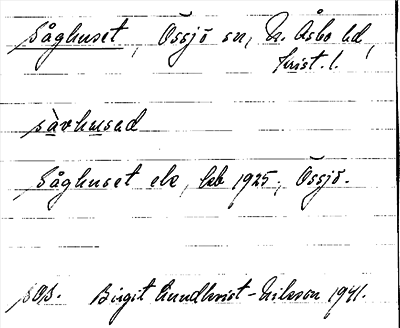 Såghuset, Össjö sn, N. Åsbo hd,
Krist. l.
sàvhusəd
Såghuset elr, beb 1925, Össjö.
SOS. Birgit Lundkvist-Nilsson 1941.